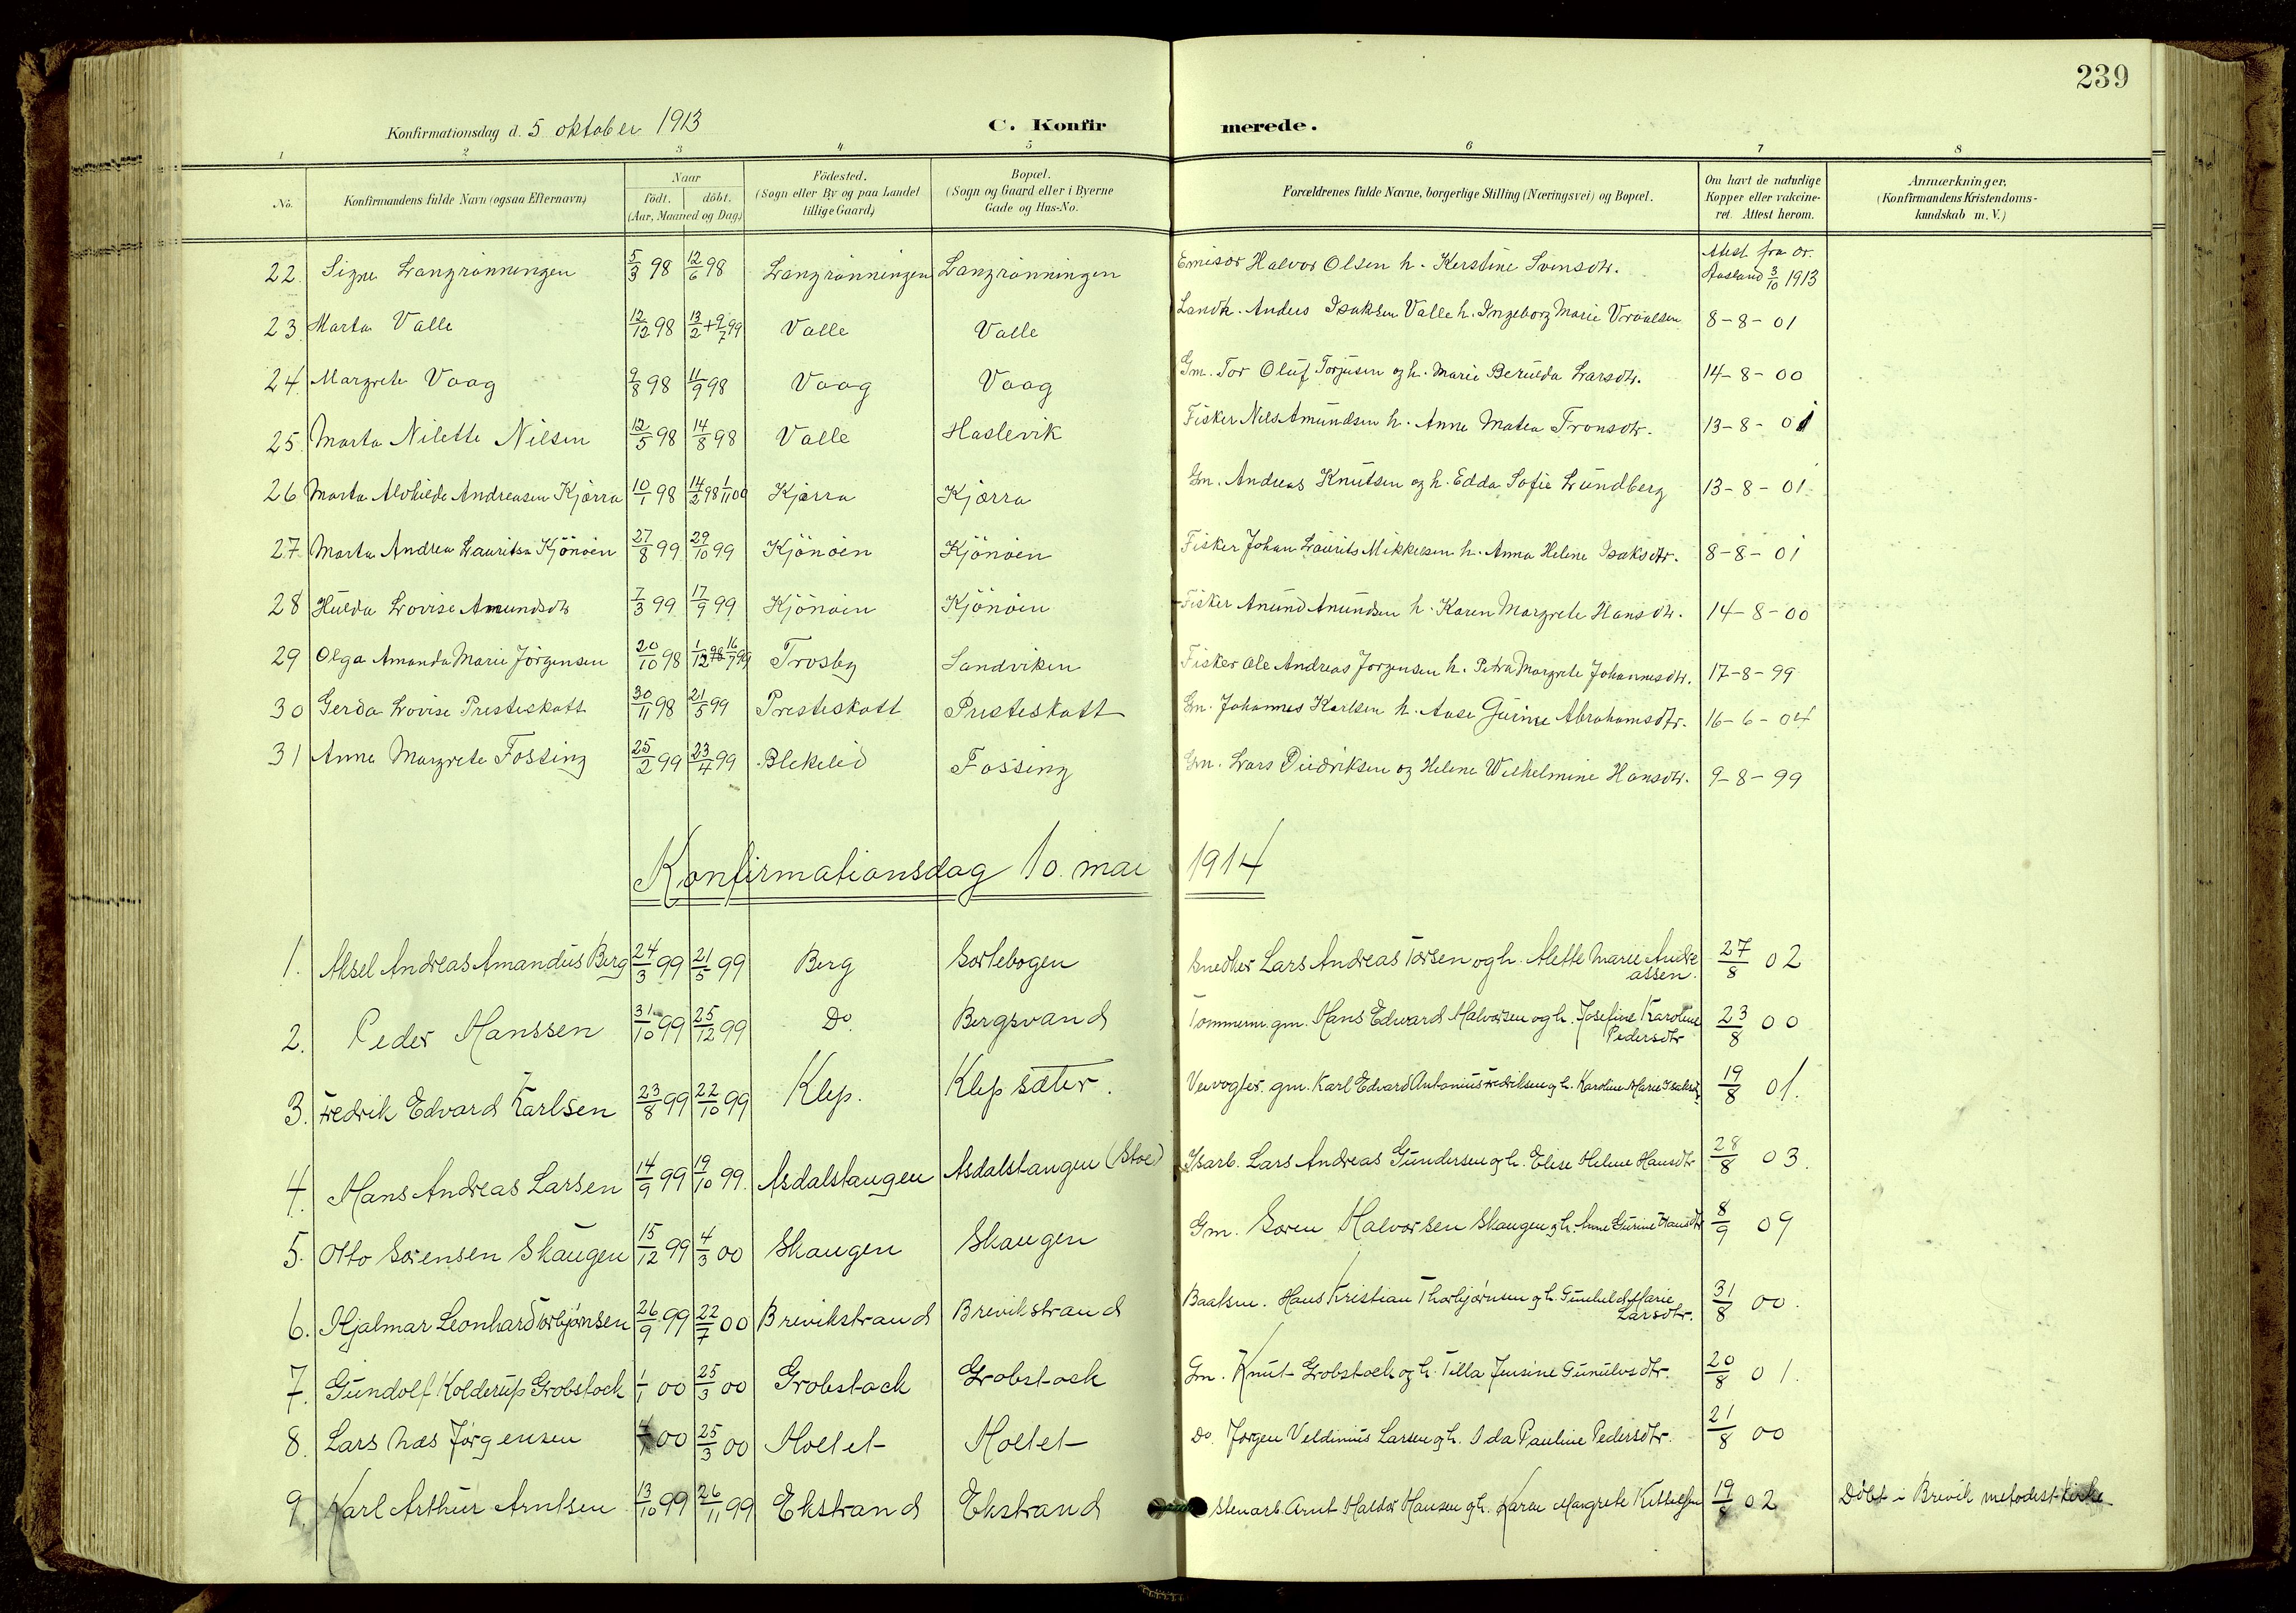 239
Konfirmationsdag d. 5 oktober 1913 C. Konfirmerede.
1 2 3 4 5 6 7 8
No. Konfirmandens fulde Navn (ogsaa Efternavn) Naar födt. döbt. (Aar, Maaned og Dag.) Födested. (Sogn eller By og paa Landet tillige Gaard) Bopæl. (Sogn og Gaard eller i Byerne Gade og Hus-No. Forældrenes fulde Navne, borgerlige Stilling (Næringsvei) og Bopæl. Om havt de naturlige Kopper eller vakcineret. Attest herom. Anmærkninger, (Konfirmandens Kristendomskundskab m. V.)
22. Signe Langrönningen 5/3 98 12/6 98 Langrönningen Langrönningen Emisær Halvor Olsen h. Kerstine Svensdtr. Attest fra dr. Aasland 3/10 1913
23. Marta Valle 12/12 98 13/2 + 9/7 99 Valle Valle Landh. Anders Isaksen Valle h. Ingeborg Marie Vraalsen 8-8-01
24. Margrete Vaag 9/8 98 11/9 98 Vaag Vaag Gm. Tor Oluf Torjusen og h. Marie Berulda Larsdtr. 14-8-00
25. Marta Nilette Nilsen 12/5 98 14/8 98 Valle Haslevik Fisker Nils Amundsen h. Anne Matea Tronsdtr. 13-8-01
26 Marta Alvhilde Andreasen Kjærra 10/1 98 14/2 98 1/11 00 Kjærra Kjærra Gm. Andreas Knutsen og h. Edda Sofie Lundberg 13-8-01
27. Marta Andrea Lauritsen Kjönöen 27/8 99 29/10 99 Kjönöen Kjönöen Fisker Johan Laurits Mikkelsen h. Anna Helene Isaksdtr. 8-8-01
28 Hulda Lovise Amundsdtr 7/3 99 17/9 99 Kjönöen Kjönöen Fisker Anund Anundsen h. Karen Margrete Hansdtr. 14-8-00
29 Olga Amanda Marie Jörgensen 20/10 98 1/12 98 16/7 99 Trosby Sandviken Fisker Ole Andreas Jorgensen h. Petra Margrete Johannesdtr. 17-8-99
30 Gerda Lovise Presteskatt 30/11 98 21/5 99 Presteskatt Presteskatt Gm. Johannes Karlsen h. Aase Gurine Abrahamsdtr. 16-6-04
31 Anne Margrete Fossing 25/2 99 23/4 99 Blekelid Fossing Gm. Lars Didriksen og Helene Wilhelmine Hansdtr. 9-8-99
Konfirmationsdag 10. mai 1914
1. Aksel Andreas Amandus Berg 24/3 99 21/5 99 Berg Sortebogen Snedker Lars Andreas Torsen og h. Alette Marie Andreassen. 27/8 02
2. Peder Hanssen 31/10 99 25/12 99 Do. Bergsvand Tommerm. gm. Hans Edvard Halvorsen og h. Josefine Karoline Pedersdtr 23/8 00
3. Fredrik Edvard Karlsen 23/8 99 22/10 99 Klep. Klepsæter. Veivogter. gm. Karl Edvard Antonius Fredriksen og h. Karoline Marie Isaksd. 19/8 01.
4. Hans Andreas Larsen 14/9 99 19/10 99. Asdalstangen Asdalstangen (Stoe) Isarb. Lars Andreas Gundersen og h. Elise Helene Hansdtr 28/8 03.
5. Otto Sørensen Skaugen 15/12 99 4/3 00 Skaugen Skaugen Gm. Soren Halvorsen Skaugen og h. Anne Gurine Hansdtr 8/9 09
6. Hjalmar Leonhard Torbjørnsen 26/9 99 22/7 00 Brevikstrand Brevikstrand Baatsm. Hans Kristian Thorbjørnsen og h. Gunhild Marie Larsdtr. 31/8 00.
7. Gundolf Kolderup Grobstock 1/1 00 25/3 00 Grobstock Grobstock Gm. Knut Grobstock og h. Tilla Jensine Gunulvsdtr. 20/8 01.
8. Lars Næs Jørgensen 4/1 00 25/3 00 Holtet Holtet Do. Jørgen Veldinius Larsen og h. Ida Pauline Pedersdtr. 21/8 00
9. Karl Arthur Arntsen 13/10 99 26/11 99 Ekstrand Ekstrand Stenarb. Arnt Haldor Hansen og h. Karen Margrete Kittelsen 19/8 02 Döbt i Brevik metodist-kirke